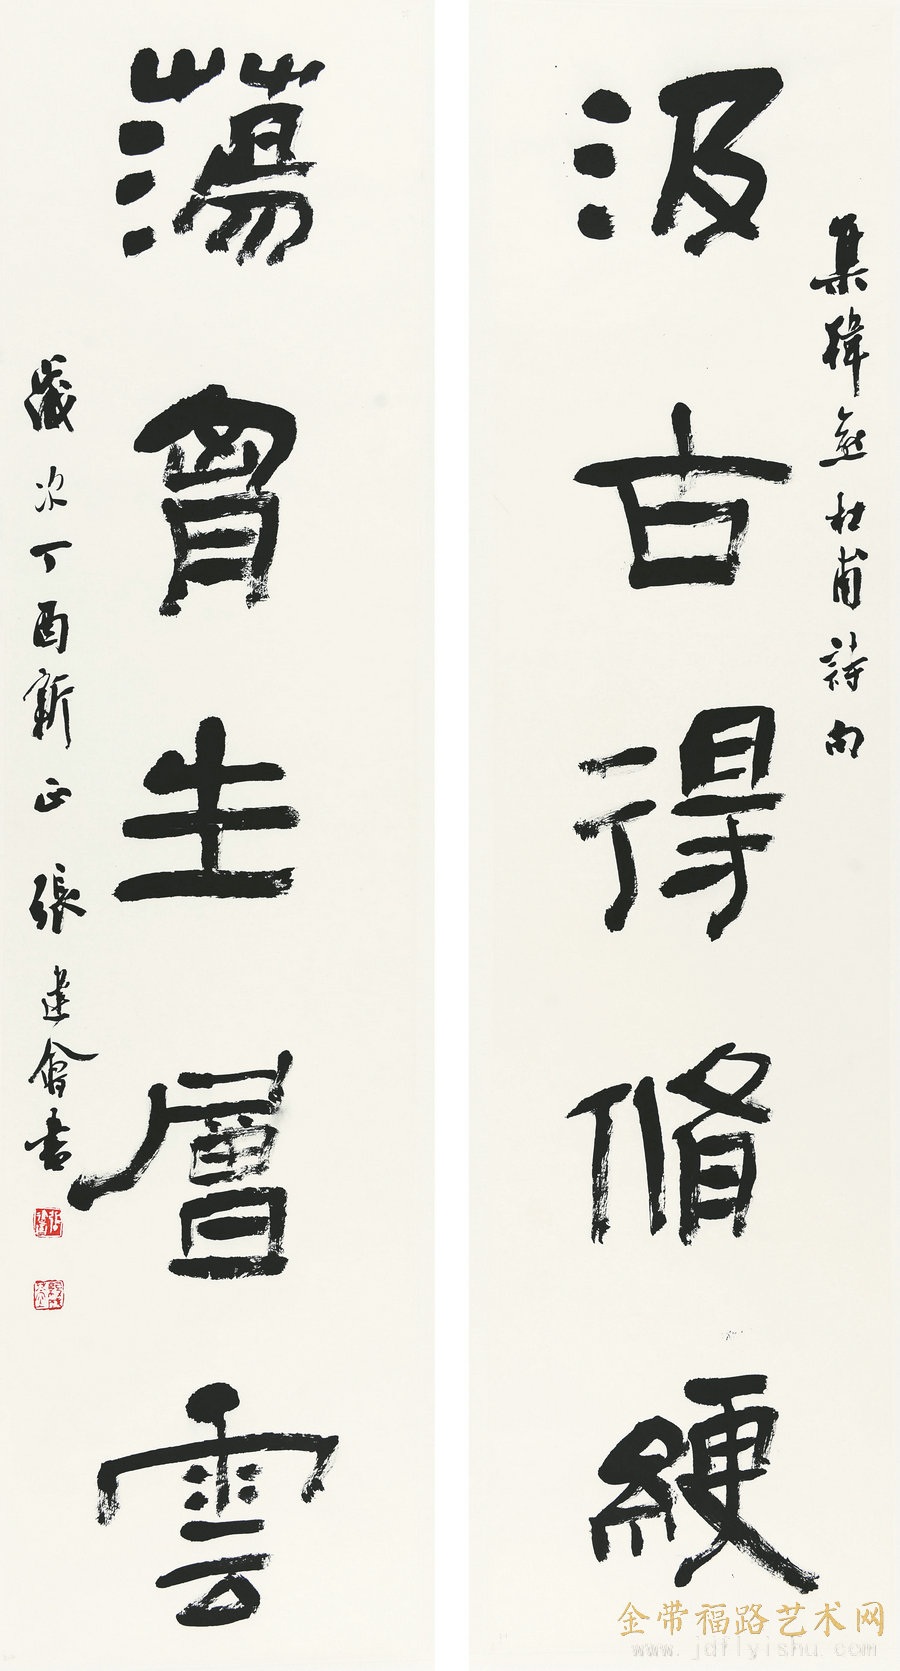 集韓愈杜甫詩句
汲古得脩綆
蕩胷生層雲
歲次丁酉新正張建會書
金带福路艺术网
www.jdflyishu.com